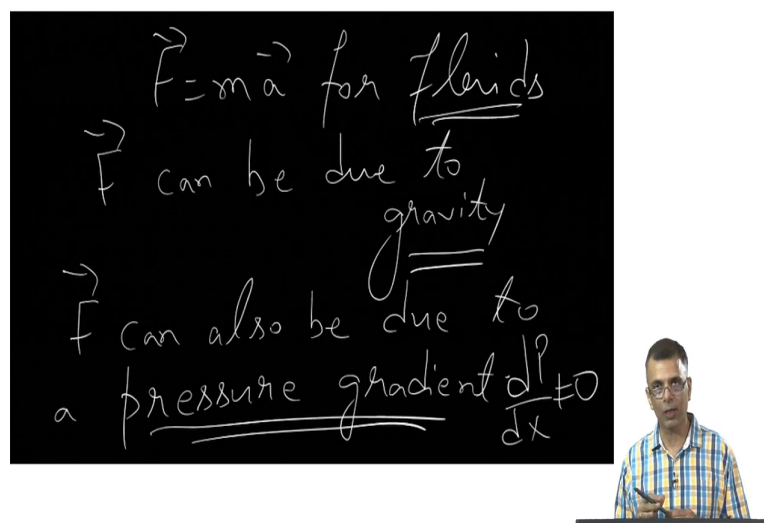 F⃗ = ma⃗ for fluids
F⃗ can be due to
gravity
F⃗ can also be due to
a pressure gradient dP/dx ≠ 0